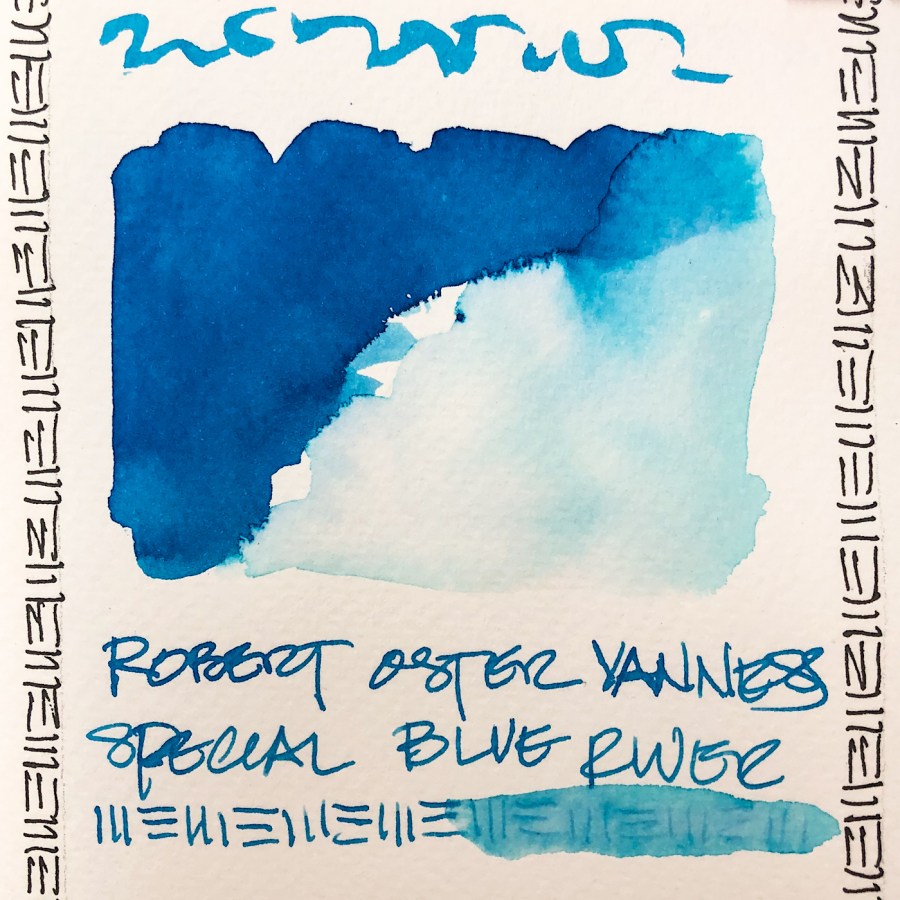 ROBERT OSTER VANNESS
SPECIAL BLUE RIVER